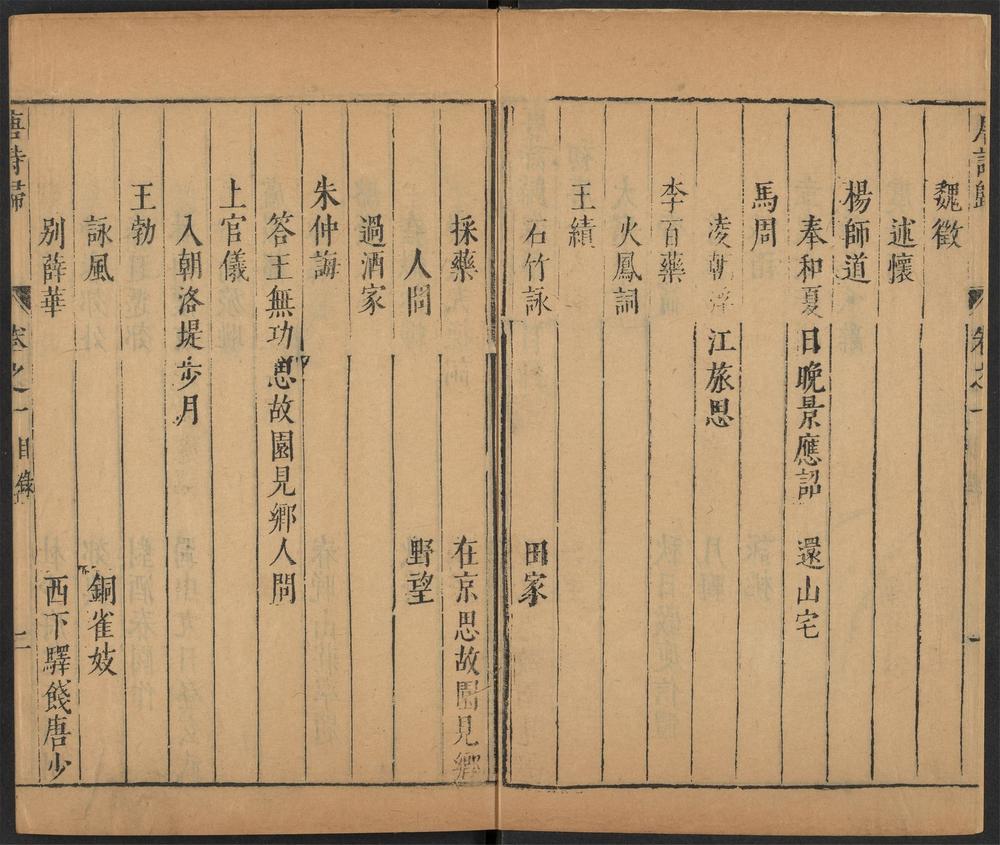 唐詩歸 卷之一
魏徵
述懷
楊師道
奉和夏日晚景應詔 還山宅
馬周
凌朝浮江旅思
李百藥
火鳳詞
王績
石竹詠 田家
採藥 在京思故園見鄉
人問 野望
過酒家
朱仲晦
答王無功思故園見鄉人問
上官儀
入朝洛堤步月
王勃
詠風 銅雀妓
別薛華 西下驛餞唐少
唐詩歸 卷之一 目錄 二